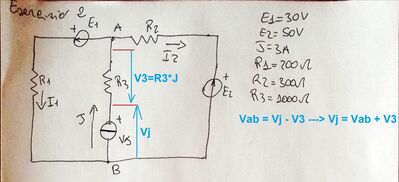 Esercizio 2
E1
A
R2
I2
R1
I1
R3
V3=R3*J
J
Vj
Vj
E2
B
E1=30V
E2=50V
J=3A
R1=200Ω
R2=300Ω
R3=1000Ω
Vab = Vj - V3 ---> Vj = Vab + V3